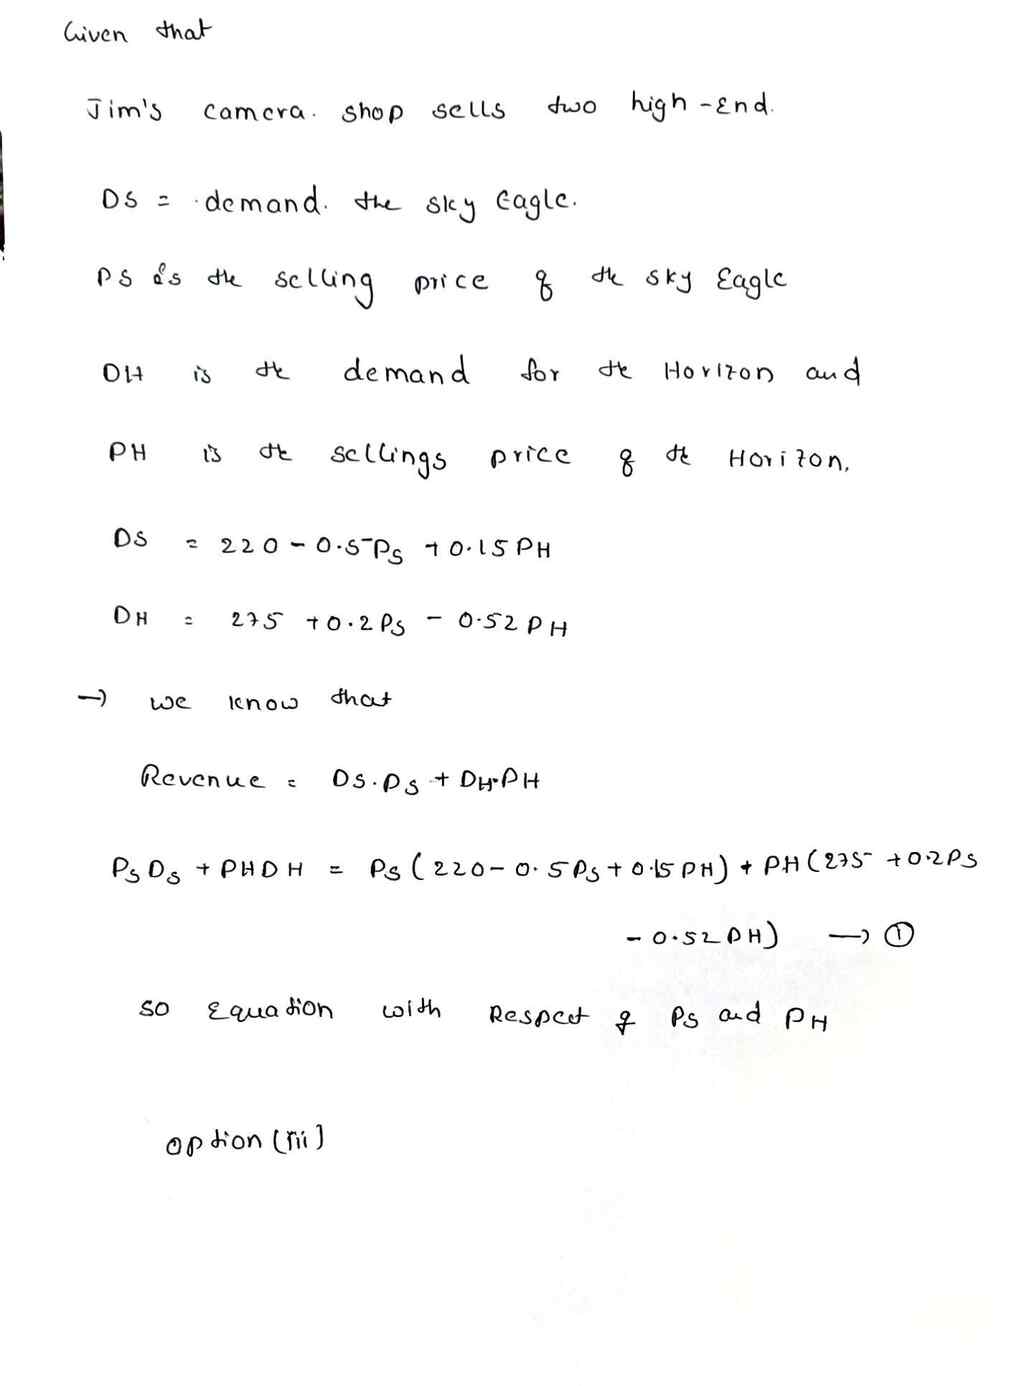 Given that
Jim's camera. shop sells two high-End.
DS = demand. the sky Eagle.
PS is the selling price of the sky Eagle
DH is the demand for the Horizon and
PH is the sellings price of the Horizon.
DS = 220 - 0.5Ps + 0.15 PH
DH = 275 + 0.2 Ps - 0.52 PH
→ we know that
Revenue = DS.Ps + DH.PH
PsDs + PHDH = Ps (220 - 0.5Ps + 0.15 PH) + PH (275 + 0.2Ps
- 0.52 PH) → ①
so Equation with Respect of Ps and PH
option (iii)